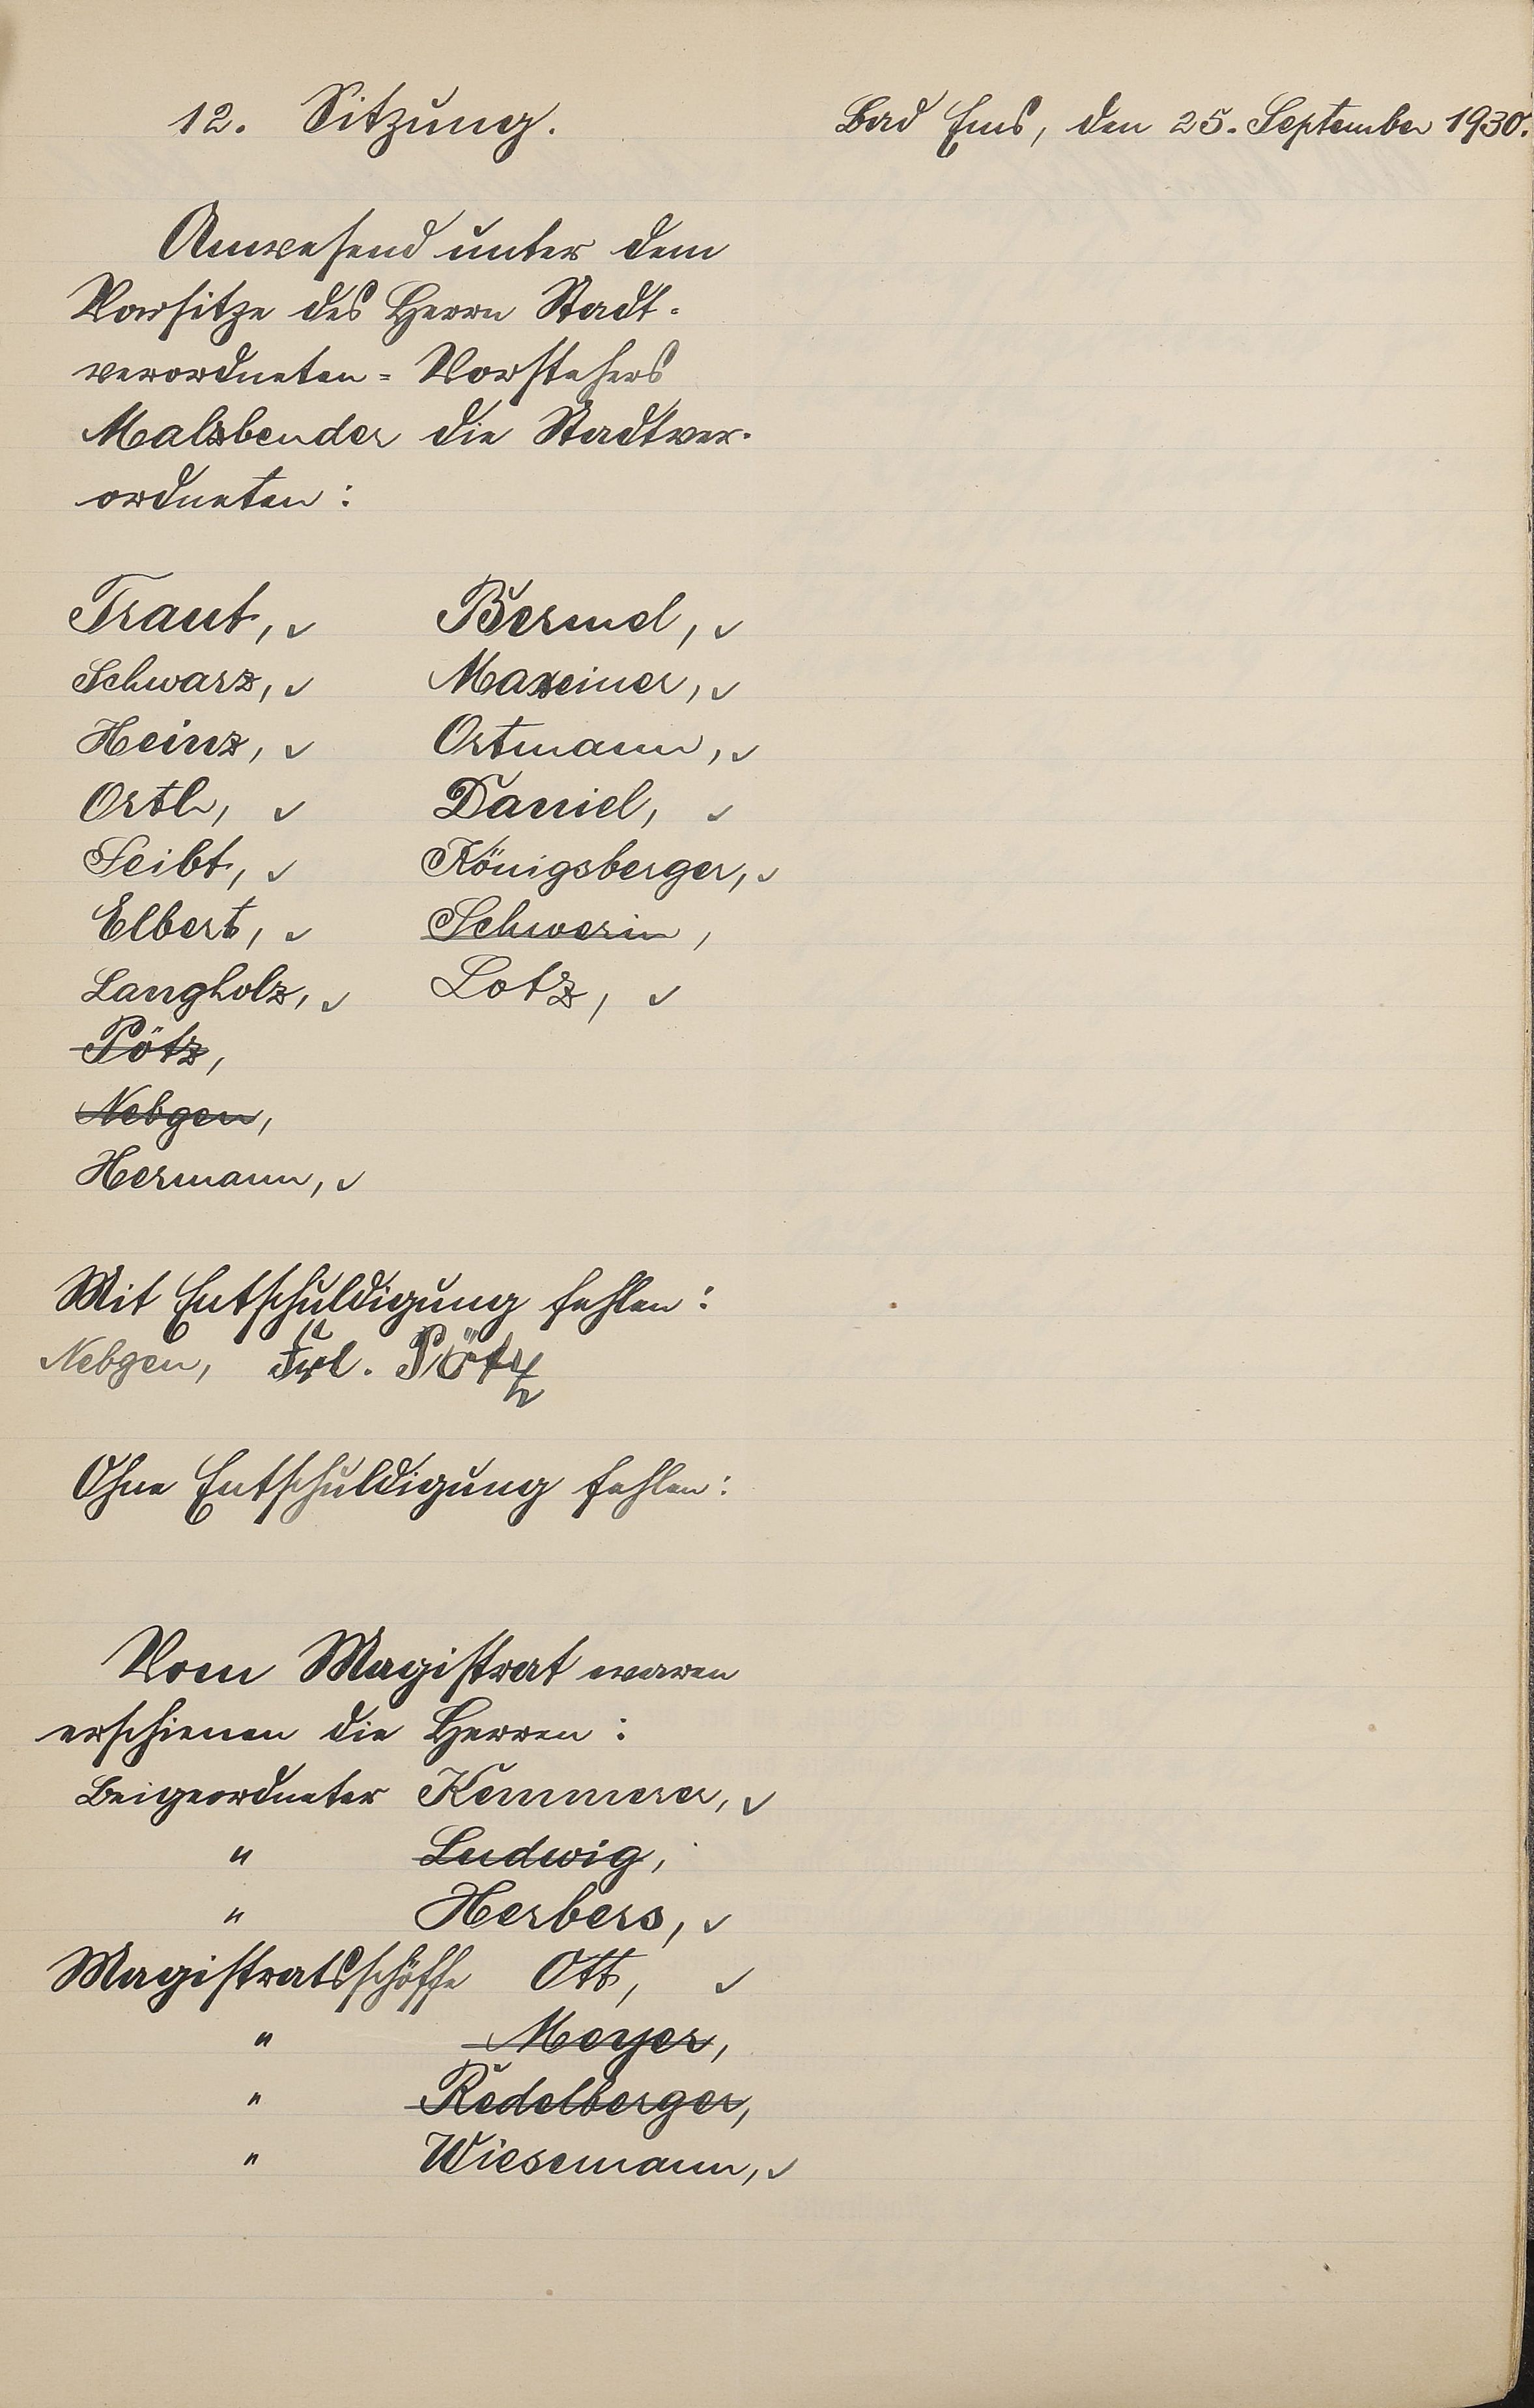 12. Sitzung. Bad Ems, den 25. September 1930.
Anwesend unter dem
Vorsitze des Herrn Stadt-
verordneten-Vorstehers
Malzbender die Stadtver-
ordneten:
Traut, ✓ Bermel, ✓
Schwarz, ✓ Maxeiner, ✓
Heinz, ✓ Ortmann, ✓
Orth, ✓ Daniel, ✓
Seibt, ✓ Königsberger, ✓
Elbert, ✓ Schwerin,
Langholz, ✓ Lotz, ✓
Pötz,
Nebgen,
Hermann, ✓
Mit Entschuldigung fehlen:
Nebgen, Frl. Pötz
Ohne Entschuldigung fehlen:
Vom Magistrat waren
erschienen die Herren:
Beigeordneter Kemmerer, ✓
" Ludwig,
" Herbers, ✓
Magistratsschöffe Ott, ✓
" Meyer,
" Redelberger,
" Wiesemann, ✓